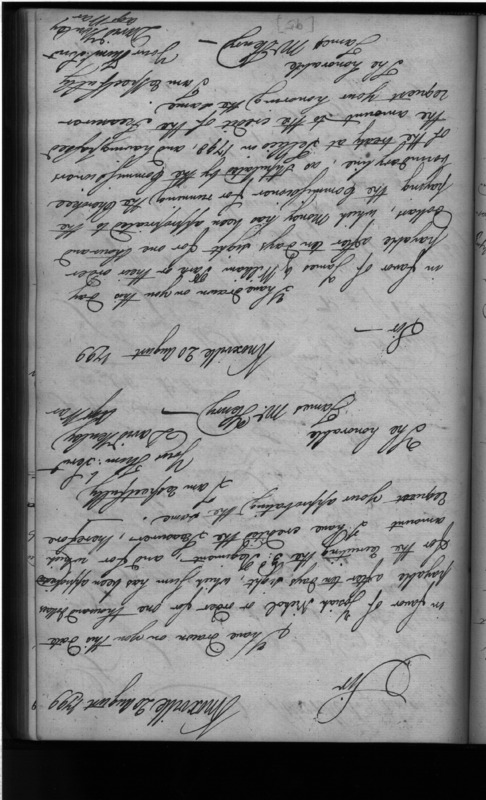 Knoxville 20 August 1799
Sir
I have drawn on you this date
in favor of Josiah Nichol or order for one thousand dollars
payable after ten days sight which sum has been
for the Recruiting the 3d Regiment - and for which
amount I have credited the Treasurer, therefore
request your approbating the same.
I am respectfully
Your Hum: Servt
(David Henley)
Agt War
The honorable
James McHenry —
Knoxville 20 August 1799
Sir —
I have drawn on you this day
in favor of James & William Park or their order
payable after ten days sight for one thousand
Dollars, which Money has been appropriated to the
paying the Commissioner for running the Cherokee
boundary line, as stipulated by the Commissioners
of the treaty at Tellico in 1798, and having passed
the amount to the credit of the Treasurer
request your honoring the same.
I am respectfully
Your Hum Servt
David Henley
Agt War
The honorable
James McHenry —
[95]